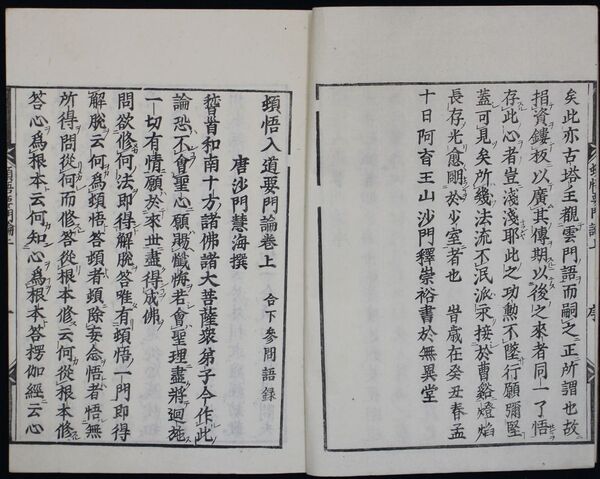 矣此亦古塔主觀雲門語而嗣之正所謂也故
捐資鏤板以廣其傳期以後之來者同一了悟
存此心者豈淺淺耶此之功勲不墜行願彌堅
蓋可見矣所幾法流不泯派接於曹谿燈焰
長存光愈於少室者也 旹歳在癸丑春孟
十日阿育王山沙門釋崇裕書於無異堂
序
頓悟入道要門論卷上 合下參問語録
唐沙門慧海撰
稽首和南十方諸佛諸大菩薩衆弟子今作此
論恐不會聖心願賜懺悔若會聖理盡將迴施
一切有情願於來世盡得成佛
問欲修何法即得解脫答唯有頓悟一門即得
解脫云何爲頓悟答頓者頓除妄念悟者悟無
所得問從何而修答從根本修云何從根本修
答心爲根本云何知心爲根本答楞伽經云心
頓悟要門論上
一